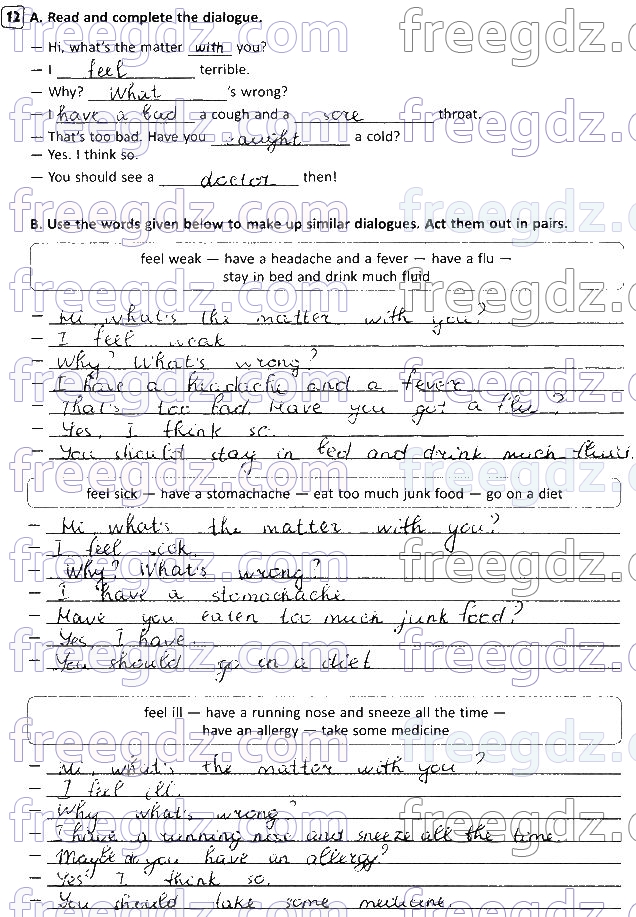 12 A. Read and complete the dialogue.
— Hi, what's the matter with you?
— I feel terrible.
— Why? What 's wrong?
— I have a bad a cough and a sore throat.
— That's too bad. Have you caught a cold?
— Yes. I think so.
— You should see a doctor then!
B. Use the words given below to make up similar dialogues. Act them out in pairs.
feel weak — have a headache and a fever — have a flu —
stay in bed and drink much fluid
— Hi, what's the matter with you?
— I feel weak
— Why? What's wrong?
— I have a headache and a fever
— That's too bad. Have you got a flu?
— Yes, I think so.
— You should stay in bed and drink much fluid.
feel sick — have a stomachache — eat too much junk food — go on a diet
— Hi, what's the matter with you?
— I feel sick.
— Why? What's wrong?
— I have a stomachache
— Have you eaten too much junk food?
— Yes, I have.
— You should go on a diet
feel ill — have a running nose and sneeze all the time —
have an allergy — take some medicine
— Hi, what's the matter with you?
— I feel ill.
— Why what's wrong?
— I have a running nose and sneeze all the time.
— Maybe you have an allergy?
— Yes I think so.
— You should take some medicine.
freegdz.com